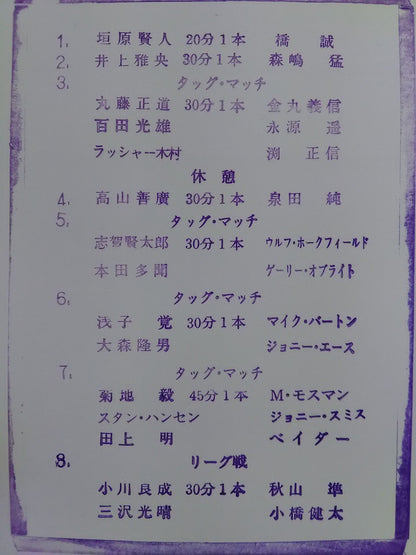 1. 垣原賢人 20分1本 橋 誠
2. 井上雅央 30分1本 森嶋 猛
3. タッグ・マッチ
丸藤正道 30分1本 金丸義信
百田光雄 永源 遥
ラッシャー木村 渕 正信
休憩
4. 高山善廣 30分1本 泉田 純
5. タッグ・マッチ
志賀賢太郎 30分1本 ウルフ・ホークフィールド
本田多聞 ゲーリー・オブライト
6. タッグ・マッチ
浅子 覚 30分1本 マイク・バートン
大森隆男 ジョニー・エース
7. タッグ・マッチ
菊地 毅 45分1本 M・モスマン
スタン・ハンセン ジョニー・スミス
田上 明 ベイダー
8. リーグ戦
小川良成 30分1本 秋山 準
三沢光晴 小橋健太